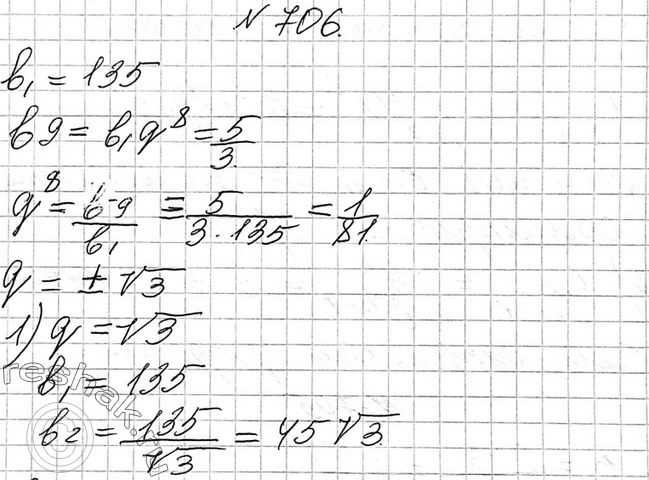 N 706.
b₁ = 135
b9 = b₁q⁸ = 5/3.
q⁸ = b9/b₁ = 5/(3·135) = 1/81.
q = ±√3
1) q = √3
b₁ = 135
b₂ = 135/√3 = 45√3.
reshak.ru